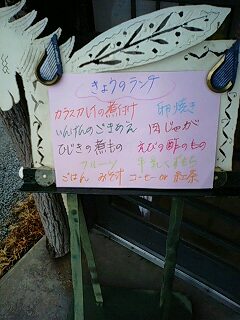 きょうのランチ
カラスカレイの煮付け 卵焼き
いんげんのごまあえ 肉じゃが
ひじきの煮もの えびの酢のもの
フルーツ 牛乳くずもち
ごはん みそ汁 コーヒーor紅茶